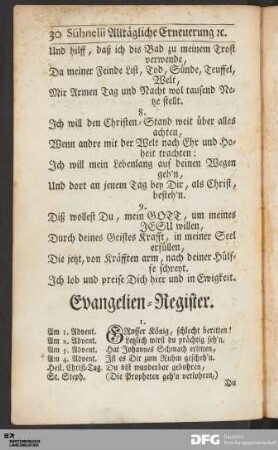 30 Sühnelii Alltägliche Erneuerung ꝛc.
Und hilff, daß ich dis Bad zu meinem Trost
verwende,
Da meiner Feinde List, Tod, Sünde, Teuffel,
Welt,
Mir Armen Tag und Nacht wol tausend Ne-
tze stellt.
8.
Ich will den Christen-Stand weit über alles
achten,
Wenn andre mit der Welt nach Ehr und Ho-
heit trachten:
Ich will mein Lebenlang auf deinen Wegen
geh'n,
Und dort an jenem Tag bey Dir, als Christ,
besteh'n.
9.
Diß wollest Du, mein GOTT, um meines
JESU willen,
Durch deines Geistes Krafft, in meiner Seel
erfüllen,
Die jetzt, von Kräfften arm, nach deiner Hülf-
fe schreyt.
Ich lob und preise Dich hier und in Ewigkeit.
Evangelien-Register.
1.
Am 1. Advent. GRosser König, schlecht beritten!
Am 2. Advent. Letzlich wirst du prächtig seh'n.
Am 3. Advent. Hat Johannes Schmach erlitten,
Am 4. Advent. Ist es Dir zum Ruhm gescheh'n.
Heil. Christ-Tag. Du bist wunderbar gebohren,
St. Steph. (Die Propheten geh'n verlohren,)
Du
WÜRTTEMBERGISCHE LANDESBIBLIOTHEK
DFG